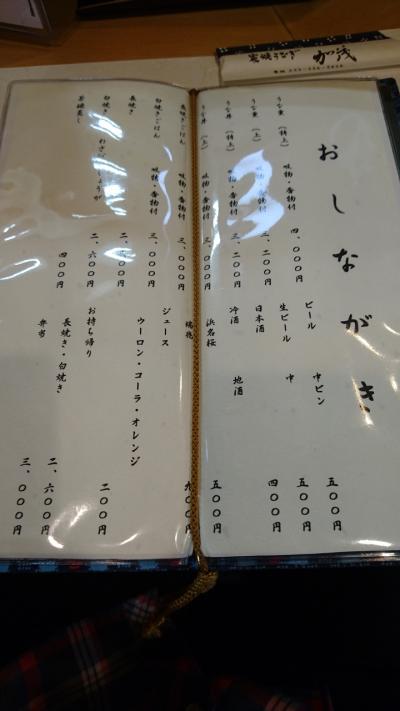 炭焼うなぎ 加茂
おしながき
うな重 (特上) 吸物・香物付 四、〇〇〇円
うな重 (上) 吸物・香物付
うな丼 (特上) 吸物・香物付 三、二〇〇円
うな丼 (上) 吸物・香物付 三、〇〇〇円
長焼ごはん 吸物・香物付 三、〇〇〇円
白焼きごはん 吸物・香物付 三、〇〇〇円
長焼き
白焼き わさび 二、六〇〇円
茶碗蒸し 四〇〇円
ビール 中ビン 五〇〇円
生ビール 中 五〇〇円
日本酒 四〇〇円
冷酒 地酒
浜名桜 五〇〇円
ジュース
ウーロン・コーラ・オレンジ 二〇〇円
お持ち帰り
長焼き・白焼き 二、六〇〇円
弁当 三、〇〇〇円